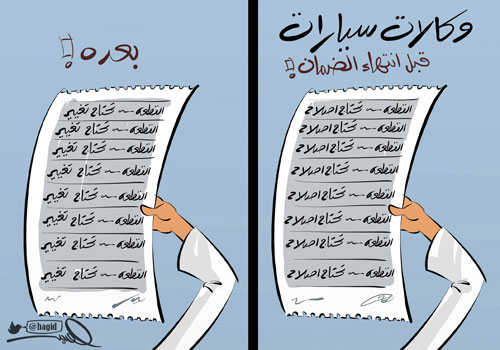 وكالات سيارات
قبل انتهاء الضمان !!
القطعه ~ تحتاج اصلاح
القطعه ~ تحتاج اصلاح
القطعه ~ تحتاج اصلاح
القطعه ~ تحتاج اصلاح
القطعه ~ تحتاج اصلاح
القطعه ~ تحتاج اصلاح
القطعه ~ تحتاج اصلاح
القطعه ~ تحتاج اصلاح
بعده !!
القطعه ~ تحتاج تغيير
القطعه ~ تحتاج تغيير
القطعه ~ تحتاج تغيير
القطعه ~ تحتاج تغيير
القطعه ~ تحتاج تغيير
القطعه ~ تحتاج تغيير
القطعه ~ تحتاج تغيير
القطعه ~ تحتاج تغيير
@hagid